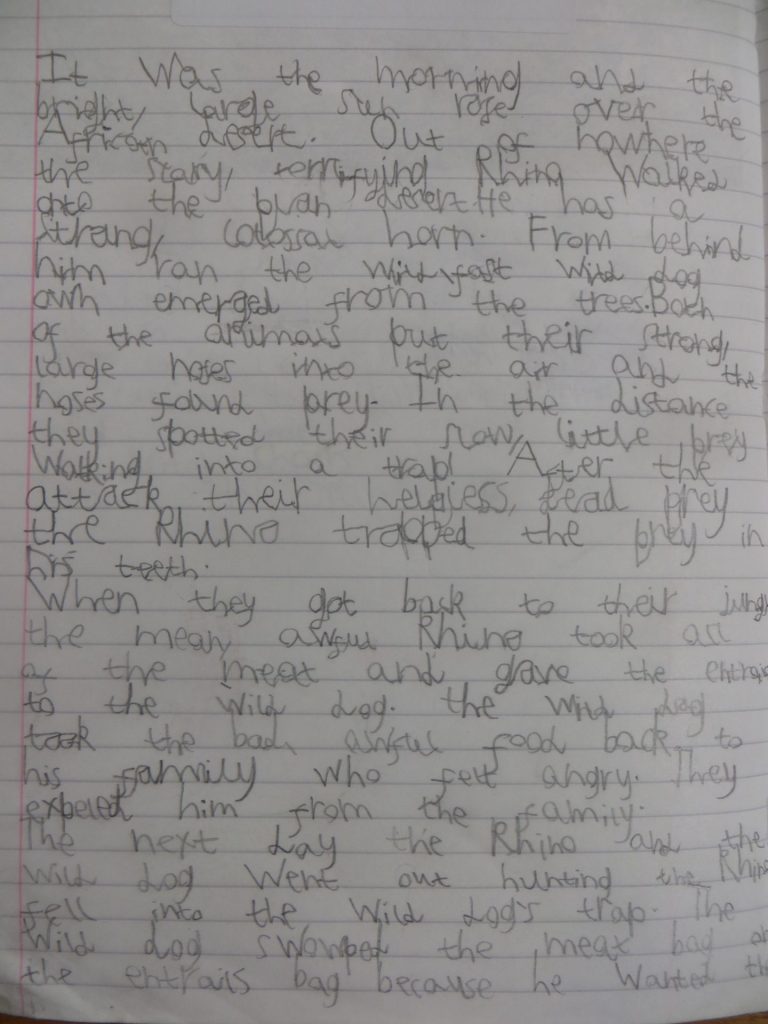 It was the morning and the
bright, large sun rose over the
African desert. Out of nowhere
the scary, terrifying Rhino walked
onto the desert. He has a
strong, colossal horn. From behind
him ran the wild, fast wild dog
emerged from the trees. Both
of the animals put their strong,
large noses into the air and the
noses found prey. In the distance
they spotted their slow, little prey
walking into a trap! After the
attack their helpless, dead prey
the Rhino trapped the prey in
his teeth.
When they got back to their
the mean, awful Rhino took all
of the meat and gave the
to the wild dog. the wild dog
took the bad, awful food back to
his family who felt angry. They
expeled him from the family.
The next day the Rhino and the
wild dog went out hunting the Rhino
fell into the wild dog's trap. The
wild dog swopped the meat bag
the entrails bag because he wanted